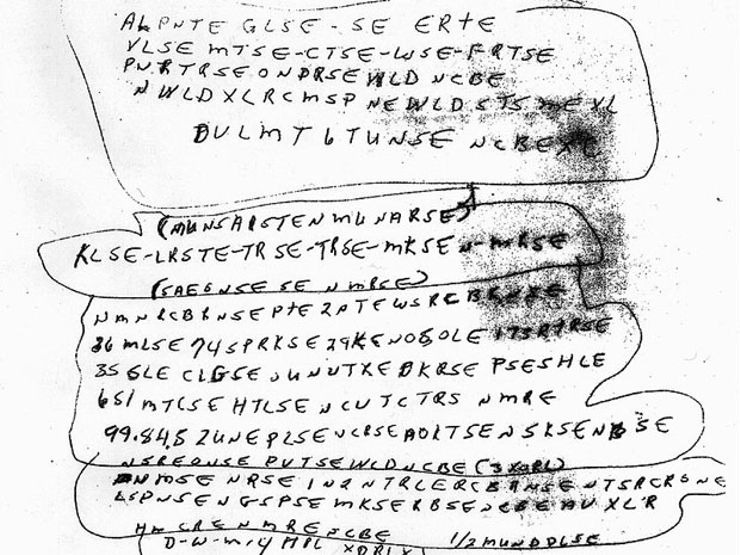 ALPNTE GLSE - SE ERTE
VLSE MTSE-CTSE-WSE-FRTSE
PNRTRSEONDRSEWLD NCBE
NWLDXLRCMSP NEWLDSTS MEXL
DULMT6TUNSE NCBEXC
(MUNSAISTENMUNARSE)
KLSE-LRSTE-TRSE-TRSE-MKSEN-MRSE
(SAE6NSE SE NMRSE)
NMNRCBRNSEPTE2PTEWSRCBRNSE
36MLSE 74SPRKSE29KENOSOLE 173RTRSE
35GLE CLGSE UNUTXE DKRSE PSESHLE
651MTCSE HTLSE NCUTCTRS NMRE
99.84.52UNEPLSENCRSEAOLTSENSKSENBSE
NSREONSE PUTSEWLDNCBE (3XORL)
NMSE NRSE IN2NTRLERCBRNSENTSRCRSNE
LSPNSENGSPSE MKSERBSENCBEAUXL'R
HM CRENMRENCBE 1/2MUNDDLSE
D-W-M-14 MIL XDRLX